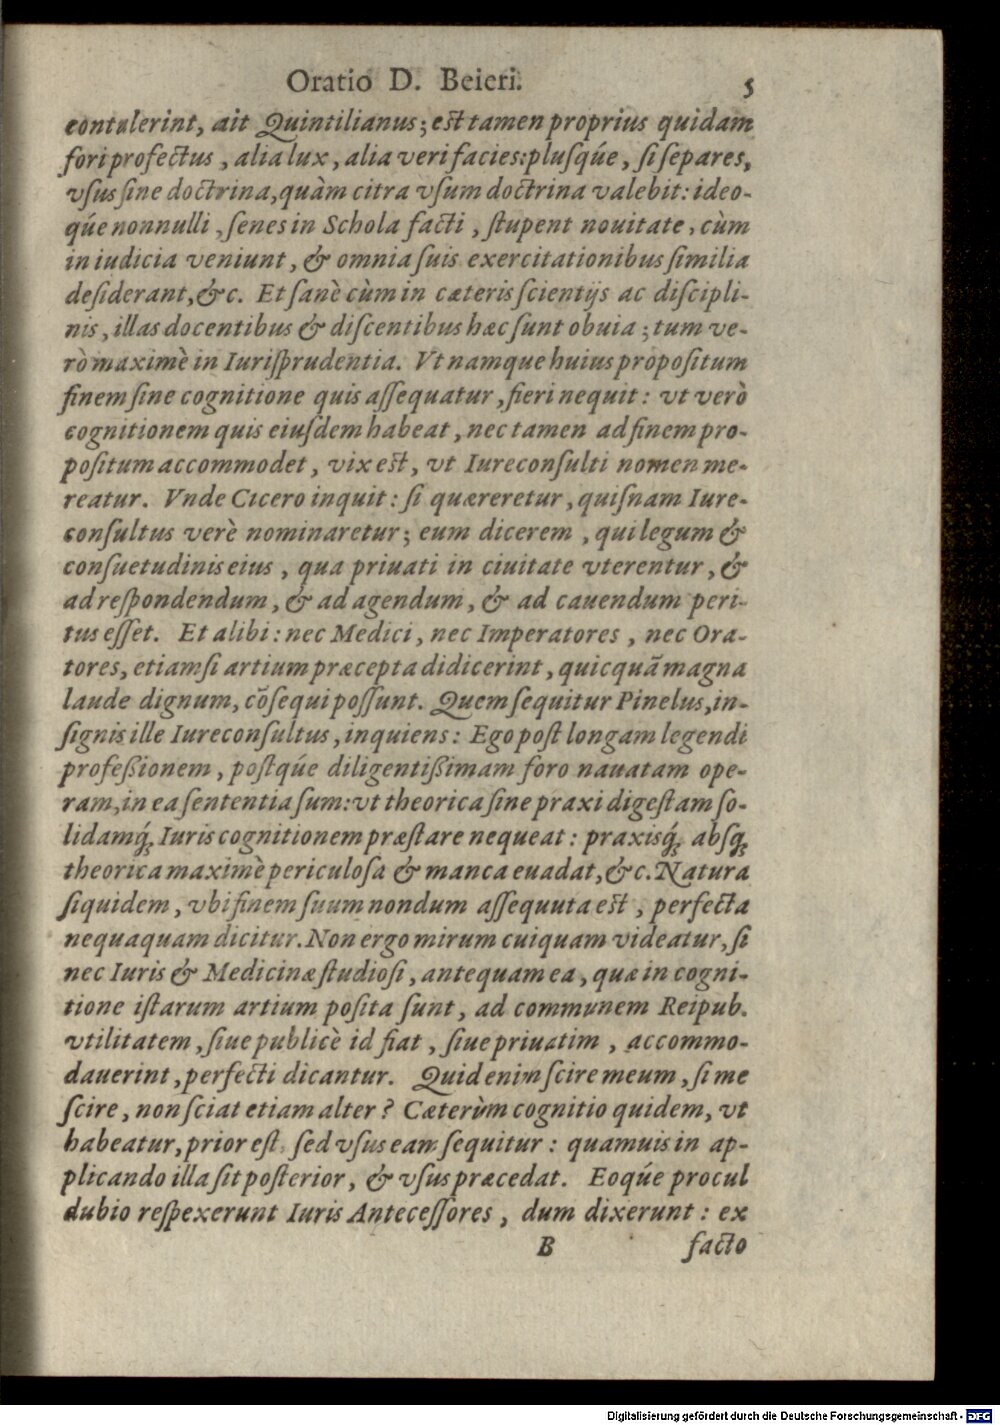 Oratio D. Beieri. 5
contulerint, ait Quintilianus; est tamen proprius quidam
fori profectus, alia lux, alia veri facies: plusq́ue, si separes,
vsus sine doctrina, quàm citra vsum doctrina valebit: ideo-
q́ue nonnulli, senes in Schola facti, stupent nouitate, cùm
in iudicia veniunt, & omnia suis exercitationibus similia
desiderant, &c. Et sanè cùm in cæteris scientijs ac discipli-
nis, illas docentibus & discentibus hæc sunt obuia; tum ve-
rò maximè in Iurisprudentia. Vt namque huius propositum
finem sine cognitione quis assequatur, fieri nequit: vt verò
cognitionem quis eiusdem habeat, nec tamen ad finem pro-
positum accommodet, vix est, vt Iureconsulti nomen me-
reatur. Vnde Cicero inquit: si quæreretur, quisnam Iure-
consultus verè nominaretur; eum dicerem, qui legum &
consuetudinis eius, qua priuati in ciuitate vterentur, &
ad respondendum, & ad agendum, & ad cauendum peri-
tus esset. Et alibi: nec Medici, nec Imperatores, nec Ora-
tores, etiamsi artium præcepta didicerint, quicquã magna
laude dignum, cõsequi possunt. Quem sequitur Pinelus, in-
signis ille Iureconsultus, inquiens: Ego post longam legendi
profeßionem, postq́ue diligentißimam foro nauatam ope-
ram, in ea sententia sum: vt theorica sine praxi digestam so-
lidamq́; Iuris cognitionem præstare nequeat: praxisq́; absq;
theorica maximè periculosa & manca euadat, &c. Natura
siquidem, vbi finem suum nondum assequuta est, perfecta
nequaquam dicitur. Non ergo mirum cuiquam videatur, si
nec Iuris & Medicinæ studiosi, antequam ea, quæ in cogni-
tione istarum artium posita sunt, ad communem Reipub.
vtilitatem, siue publicè id fiat, siue priuatim, accommo-
dauerint, perfecti dicantur. Quid enim scire meum, si me
scire, non sciat etiam alter? Cæterùm cognitio quidem, vt
habeatur, prior est, sed vsus eam sequitur: quamuis in ap-
plicando illa sit posterior, & vsus præcedat. Eoq́ue procul
dubio respexerunt Iuris Antecessores, dum dixerunt: ex
B facto
Digitalisierung gefördert durch die Deutsche Forschungsgemeinschaft - DFG